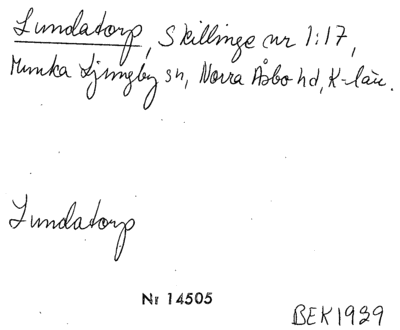 Lundatorp, Skillinge nr 1:17,
Munka Ljungby sn, Norra Åsbo hd, K-län.
Lundatorp
Nr 14505
BEK1939